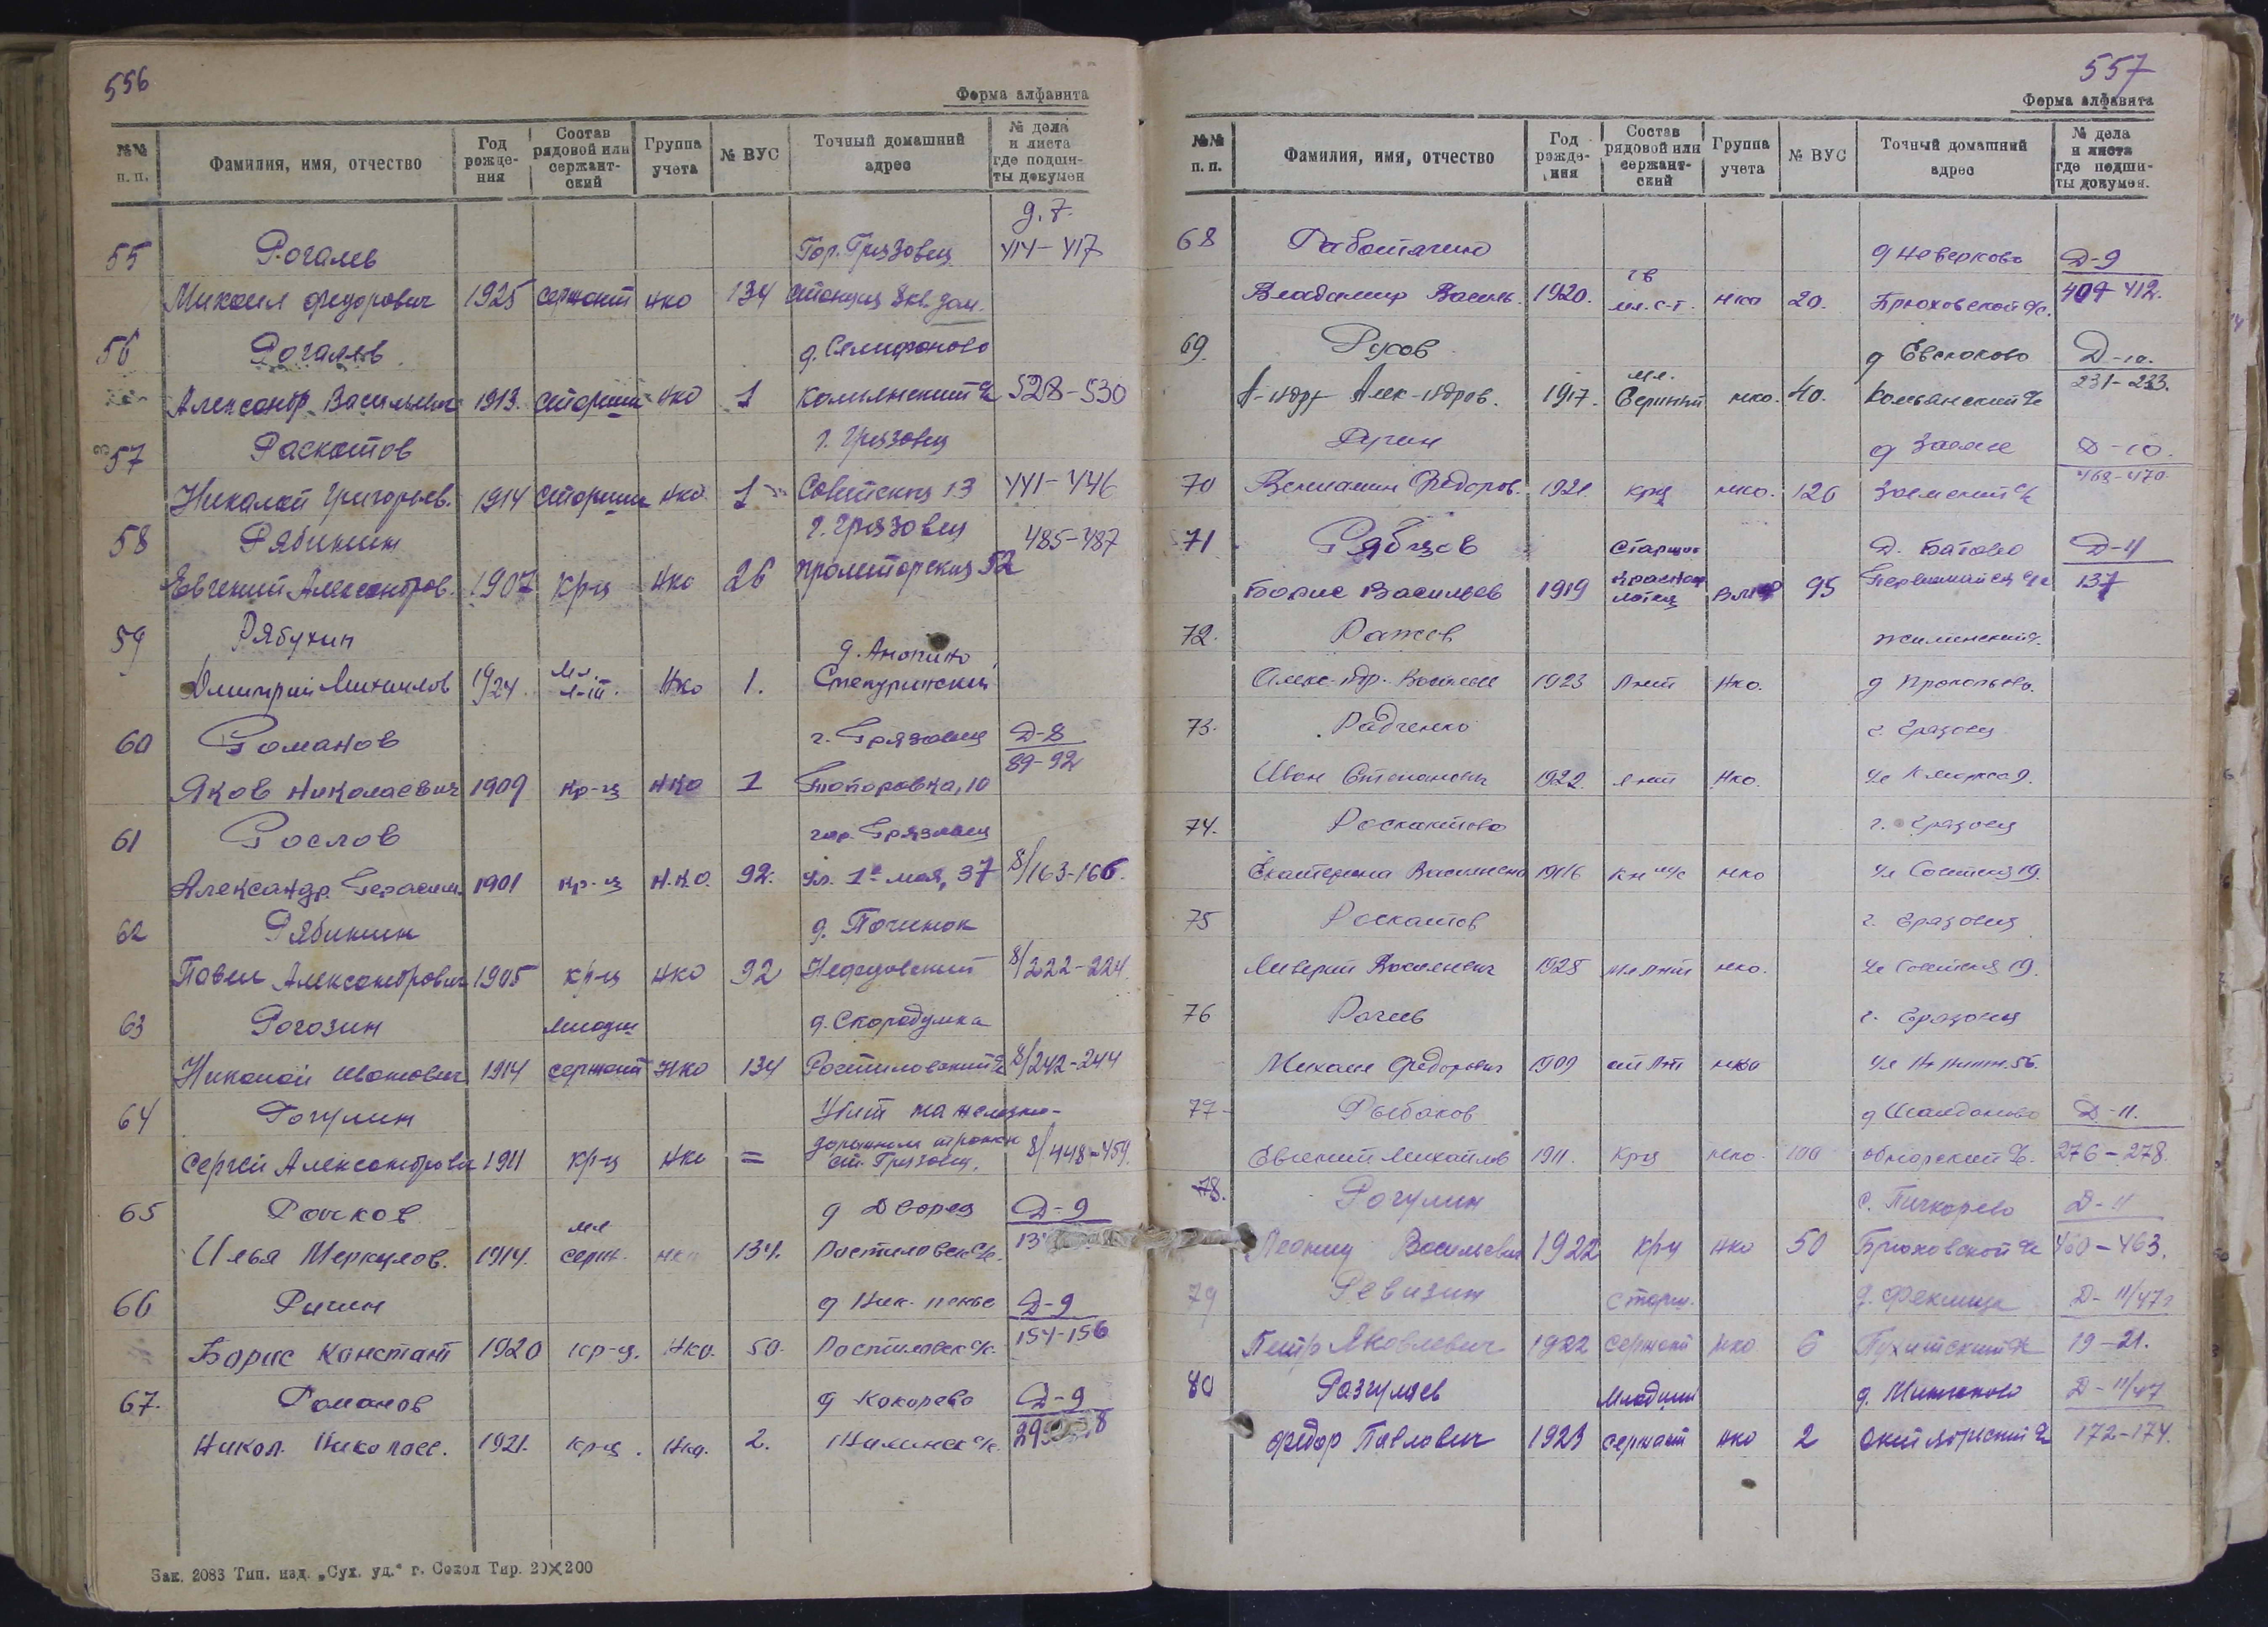 556
Форма алфавита
№№ п. п. Фамилия, имя, отчество Год рожде-ния Состав рядовой или сержант-ский Группа учета № ВУС Точный домашний адрес № дела и листа где подши-ты докумен
д. 7.
55 Рогалев Гор. Грязовец 414-417
Михаил Федорович 1925 сержант нко 134 станция 8 кв. дом.
56 Рогалев д. Селифоново
Александр Васильевич 1913. старшин нко 1 Комьянский 528-530
57 Раскатов г. Грязовец
Николай Григорьев. 1914 старшин нко 1 Советская 13 441-446
58 Рябинин г. Грязовец 485-487
Евгений Александров. 1907 кр-ц нко 26 Пролетарская 52
59 Рябухин д. Анопино
Дмитрий Михайлов 1924. мл. нко 1.
60 Романов г. Грязовец Д-8
Яков Николаевич 1909 кр-ц нко 1 Топоровка, 10 89-92
61 Рослов гор. Грязовец
Александр. Герасим. 1901 кр-ц Н.К.О. 92. ул. 1е мая, 37 8/163-166.
62 Рябинин д. Починок
Павел Александрович 1905 кр-ц нко 92 8/222-224.
63 Рогозин младш д. Скородумка
Николай Иванович 1914 сержант нко 134 Ростиловский 8/242-244
64 Рогулин Убит на железно-
Сергей Александрович 1911 кр-ц нко = дорожном ст. Грязовец. 8/448-459.
65 Рочков мл д Дворец Д-9
Илья Меркулов. 1914. серж. нко 134. Ростиловск с/с.
66 Ричин д Д-9
Борис Констант 1920 кр-ц. нко. 50. Ростиловск с/с. 154-156
67. Романов д Кокорево Д-9
Никол. Николаев. 1921. кр-ц. нко. 2.
Зак. 2083 Тип. изд. „Сух. уд.“ г. Сокол Тир. 20×200
557
Форма алфавита
№№ п. п. Фамилия, имя, отчество Год рожде-ния Состав рядовой или сержант-ский Группа учета № ВУС Точный домашний адрес № дела и листа где подши-ты докумен.
68 Работягин гв д Неверково Д-9
Владимир Василь. 1920. мл. с-т. нко 20. Брюховской с/с. 409-412.
69. Русов мл. д Евсюково Д-10.
А-ндр Алек-ндров. 1917. Сержант нко. 40. Комьянский с/с 231-233.
Ругин д Заемье Д-10.
70 Вениамин Федоров. 1921. крц нко. 126 Заемский с/с 468-470
71 Рябцов старший Д. Батово Д-11
Борис Васильев 1919 краснофлотец ВМФ 95 Первомайск с/с 137
72. Ражев
Алекс-ндр. Васильев 1923 Лейт нко. д Прокопьево.
73. Радченко г. Грязовец
Иван Степанович 1922. Лейт нко. ул К Маркса 9.
74. Роскатова г. Грязовец
Екатерина Васильевна 1916 нко ул Советская 19.
75 Роскатов г. Грязовец
Ливерий Васильевич 1925 мл лейт нко. ул Советская 19.
76 Рачев г. Грязовец
Михаил Федорович 1909 ст Лт нко 56.
77 Рыбаков д Д-11.
Евгений Михайлов 1911. крц нко 100 Обнорский с/с. 276-278.
78. Рогулин с. Пичкарево Д-11
Леонид Васильевич 1922 кр-ц нко 50 Брюховской с/с 460-463.
79 Ревизин старш. д. Феклица
Петр Яковлевич 1922 сержант нко 6 19-21.
80 Разгуляев младший д. Минькино Д-11/47
Федор Павлович 1923 сержант нко 2 172-174.